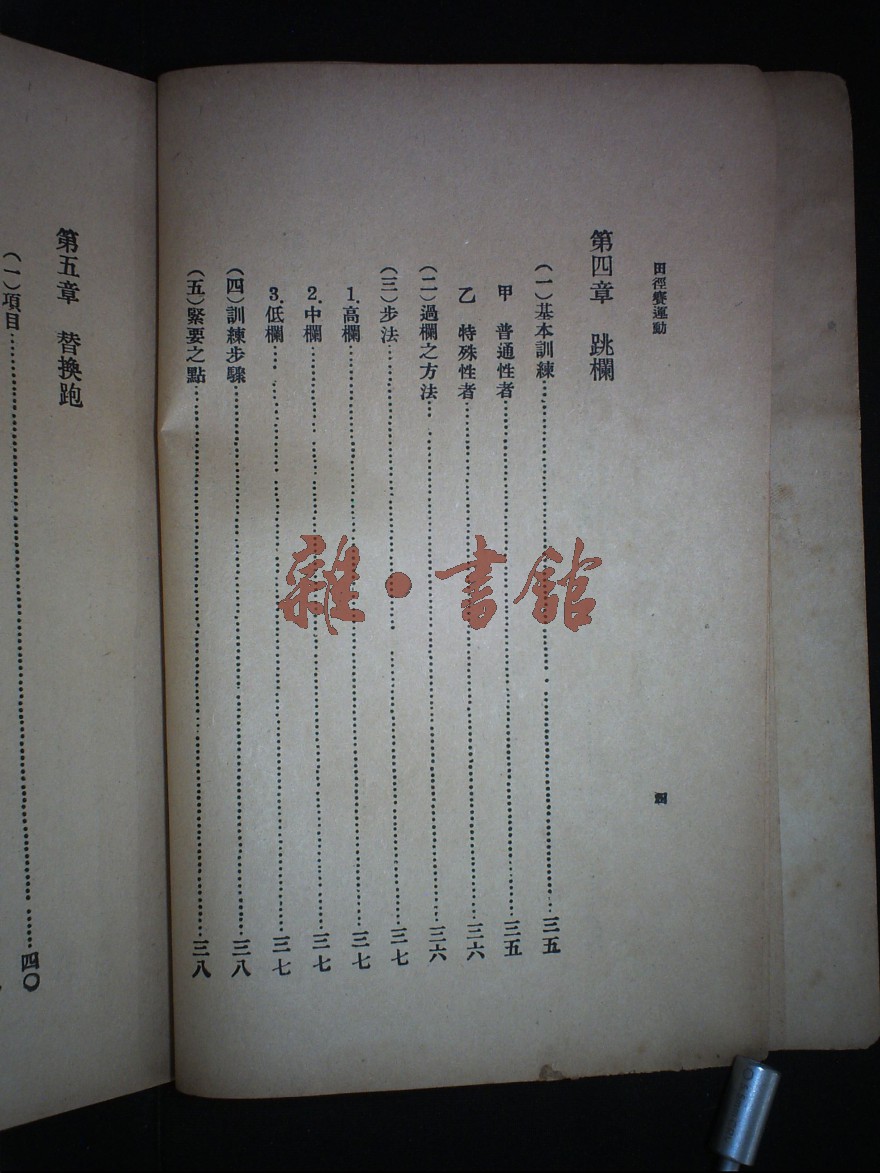 田徑賽運動
四
第四章 跳欄
(一)基本訓練……三五
甲 普通性者……三五
乙 特殊性者……三六
(二)過欄之方法……三六
(三)步法……三七
1.高欄……三七
2.中欄……三七
3.低欄……三七
(四)訓練步驟……三八
(五)緊要之點……三八
第五章 替換跑
(一)項目……四〇
雜·書館